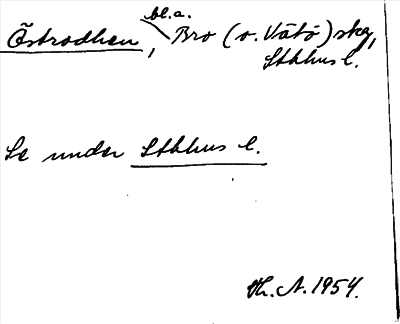 bl.a.
Östrodhen, Bro (o. Vätö) skg,
Sthhus l.
Se under Sthhus l.
Th. A. 1954.